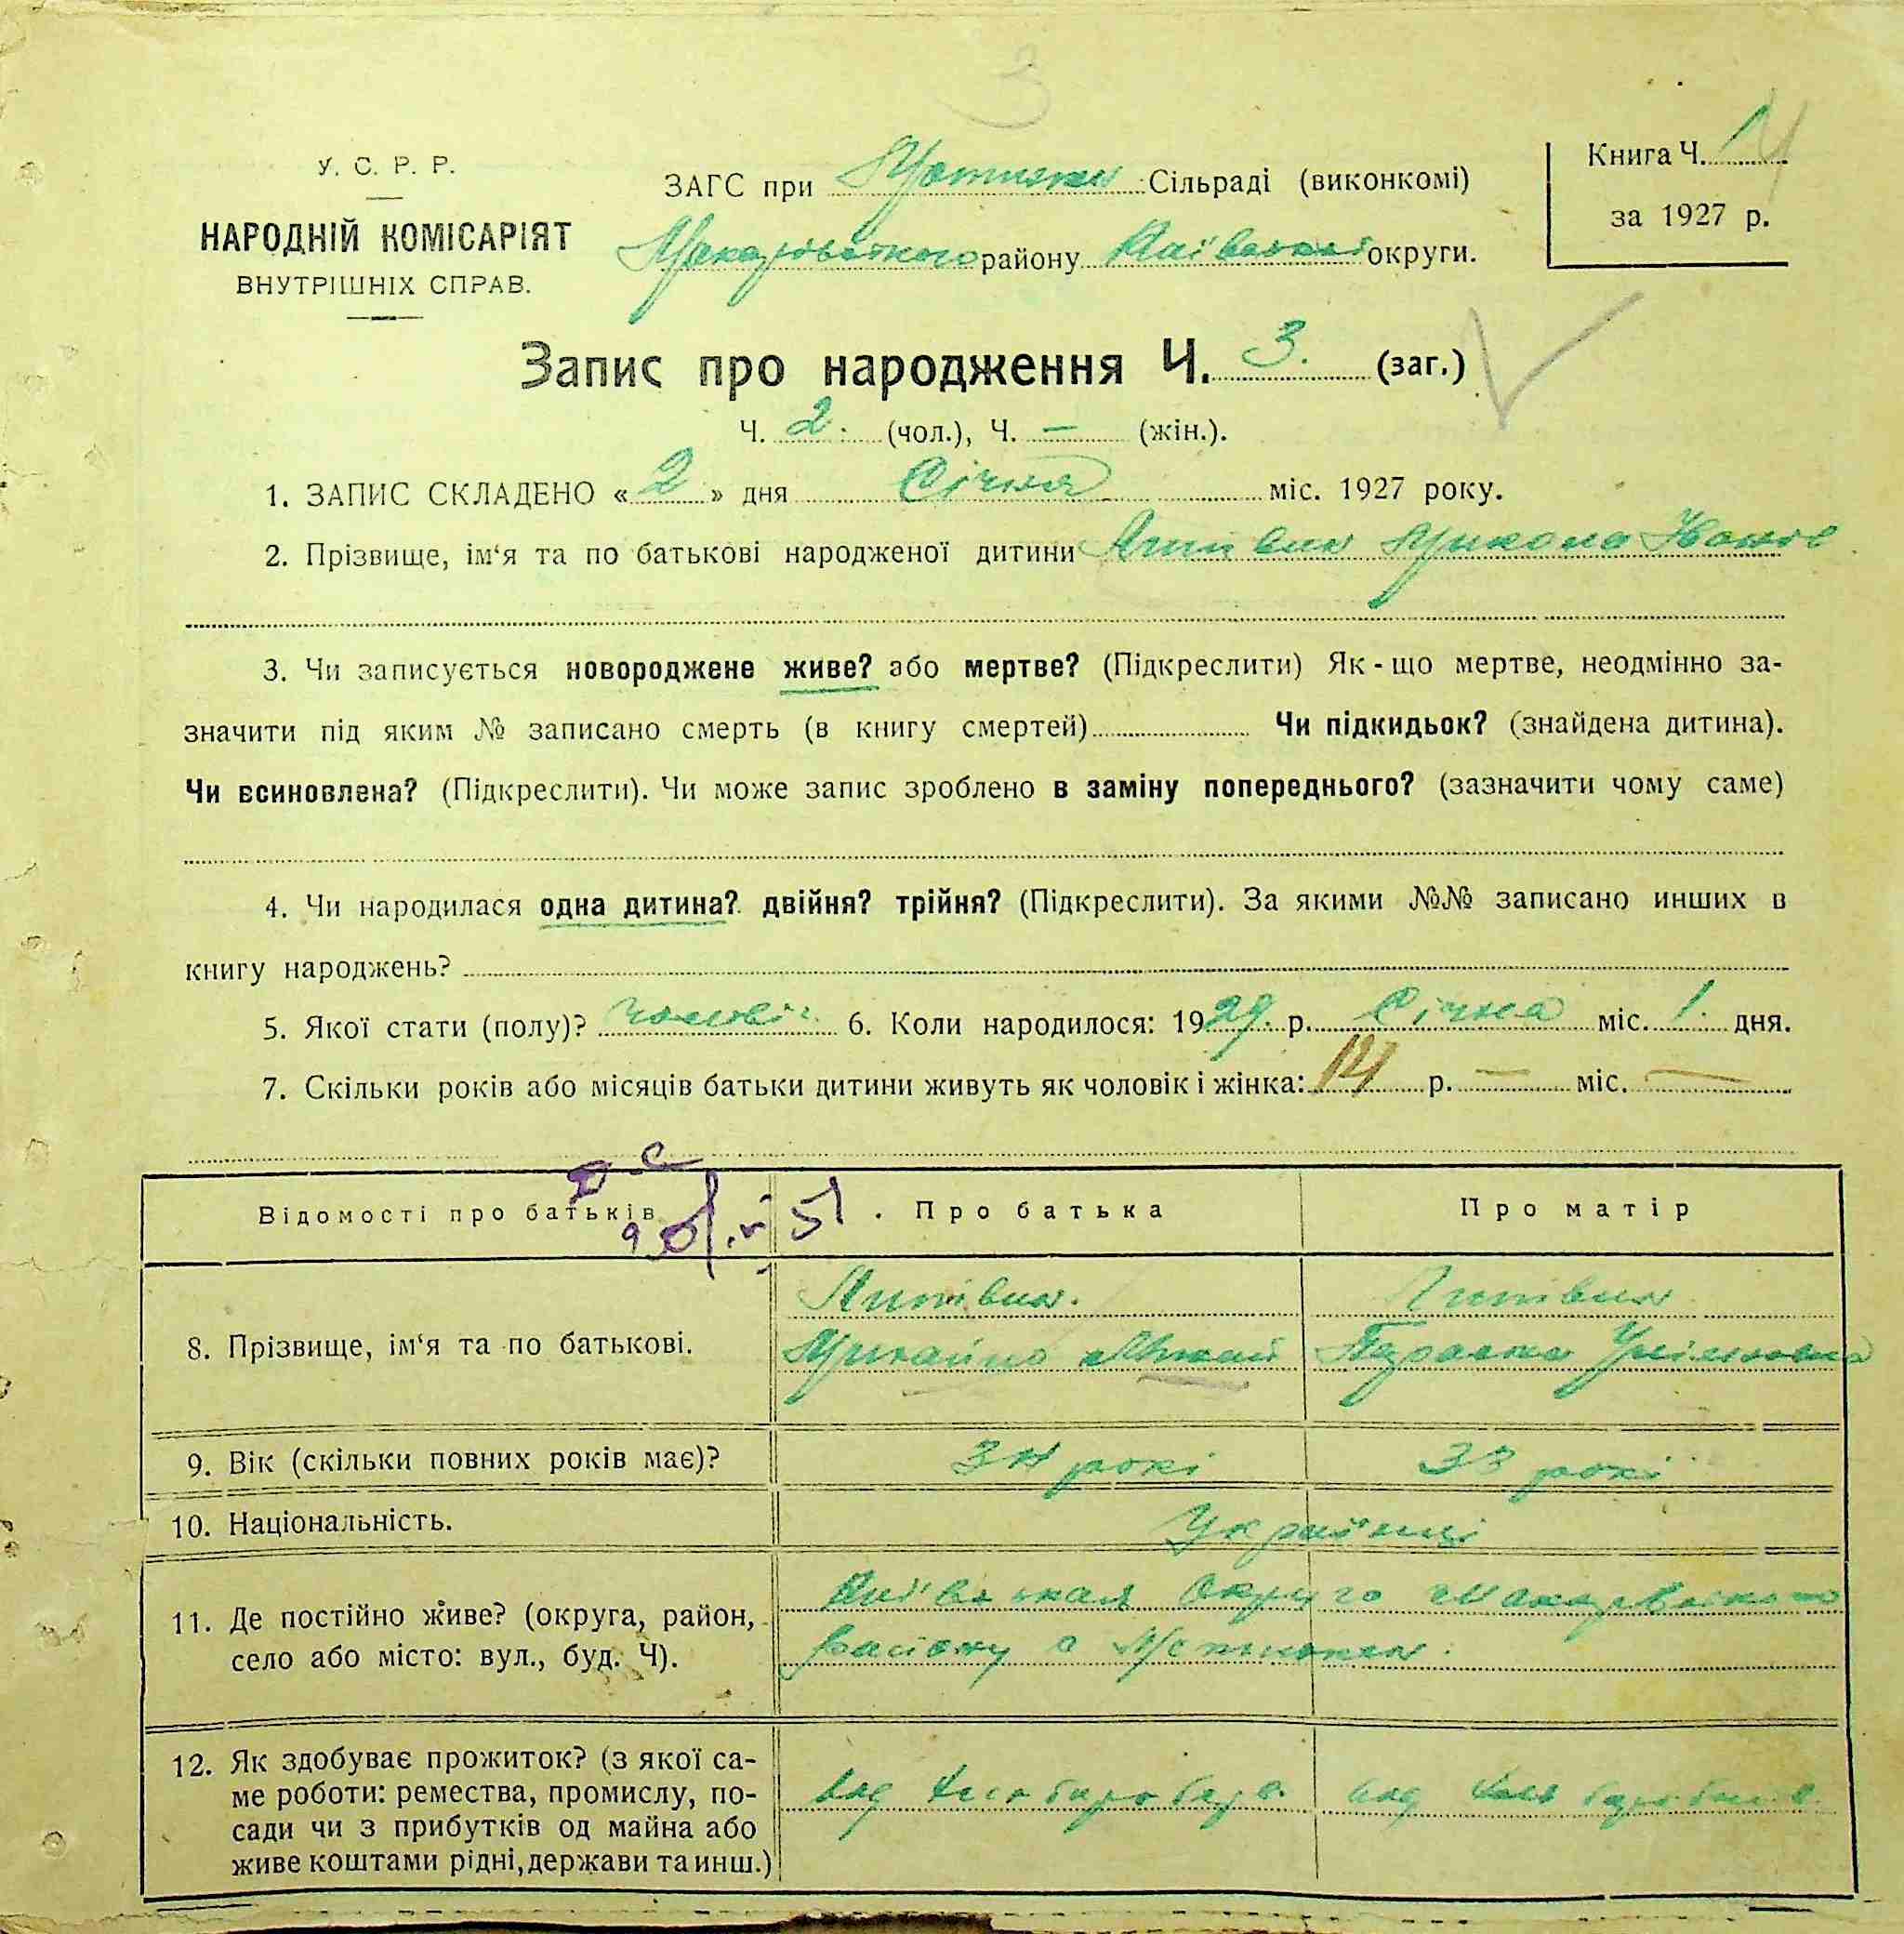 3
У. С. Р. Р.
НАРОДНІЙ КОМІСАРІЯТ
ВНУТРІШНІХ СПРАВ.
ЗАГС при Сільраді (виконкомі)
району Київської округи.
Книга Ч. 1
за 1927 р.
Запис про народження Ч. 3. (заг.)
Ч. 2. (чол.), Ч. — (жін.).
1. ЗАПИС СКЛАДЕНО «2» дня Січня міс. 1927 року.
2. Прізвище, ім‘я та по батькові народженої дитини Литвин Микола
3. Чи записується новороджене живе? або мертве? (Підкреслити) Як-що мертве, неодмінно за-
значити під яким № записано смерть (в книгу смертей) Чи підкидьок? (знайдена дитина).
Чи всиновлена? (Підкреслити). Чи може запис зроблено в заміну попереднього? (зазначити чому саме)
4. Чи народилася одна дитина? двійня? трійня? (Підкреслити). За якими №№ записано инших в
книгу народжень?
5. Якої стати (полу)? 6. Коли народилося: 1927. р. Січня міс. 1. дня.
7. Скільки років або місяців батьки дитини живуть як чоловік і жінка: 14 р. — міс. —
Відомості про батьків. Про батька Про матір
Литвин. Литвин
8. Прізвище, ім‘я та по батькові.
9. Вік (скільки повних років має)? 34 рокі 33 рокі
10. Національність. Українці
11. Де постійно живе? (округа, район,
село або місто: вул., буд. Ч).
12. Як здобуває прожиток? (з якої са-
ме роботи: ремества, промислу, по-
сади чи з прибутків од майна або
живе коштами рідні, держави та инш.)